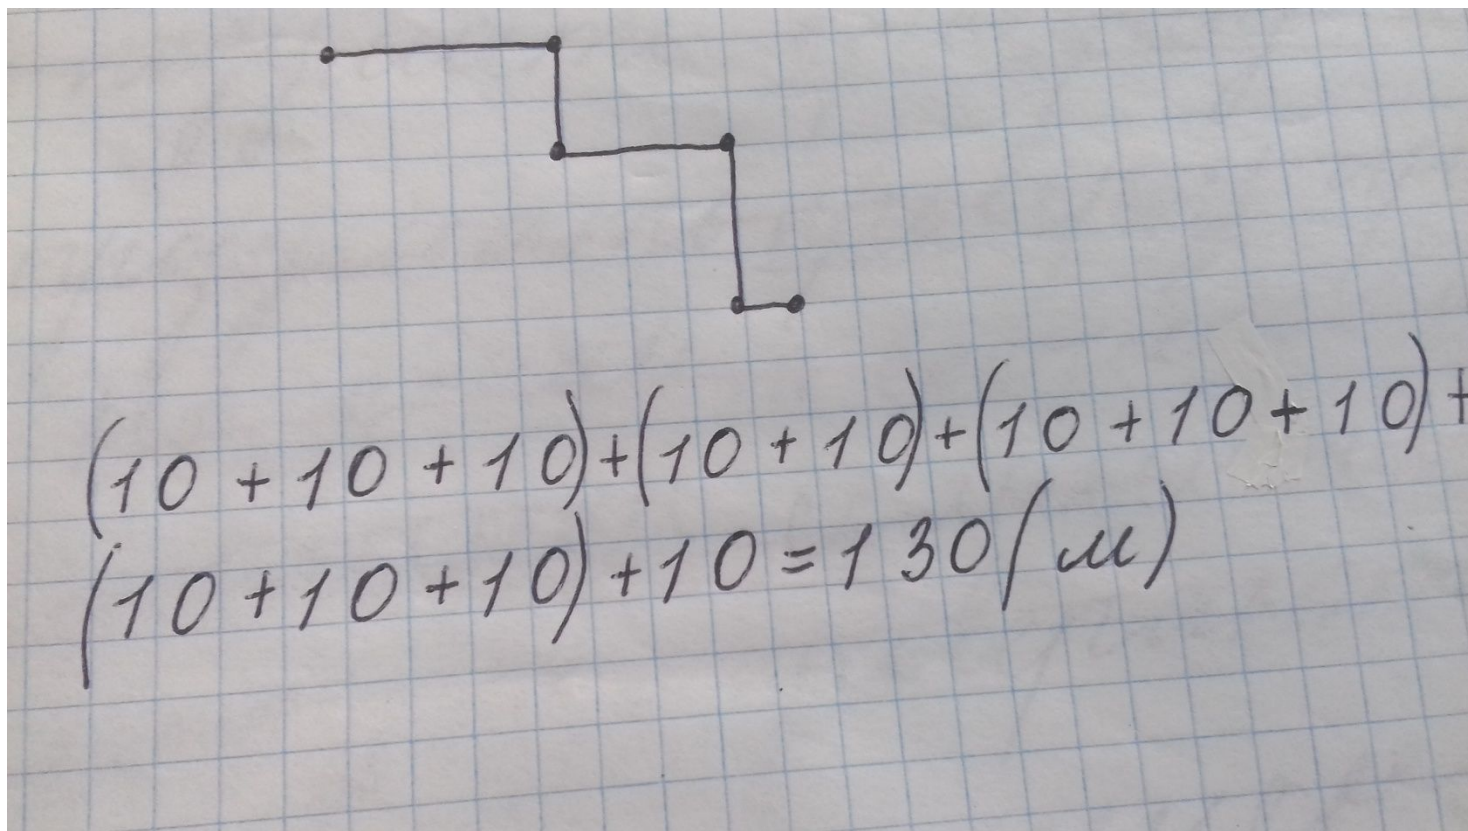 (10+10+10)+(10+10)+(10+10+10)+
(10+10+10)+10=130(м)